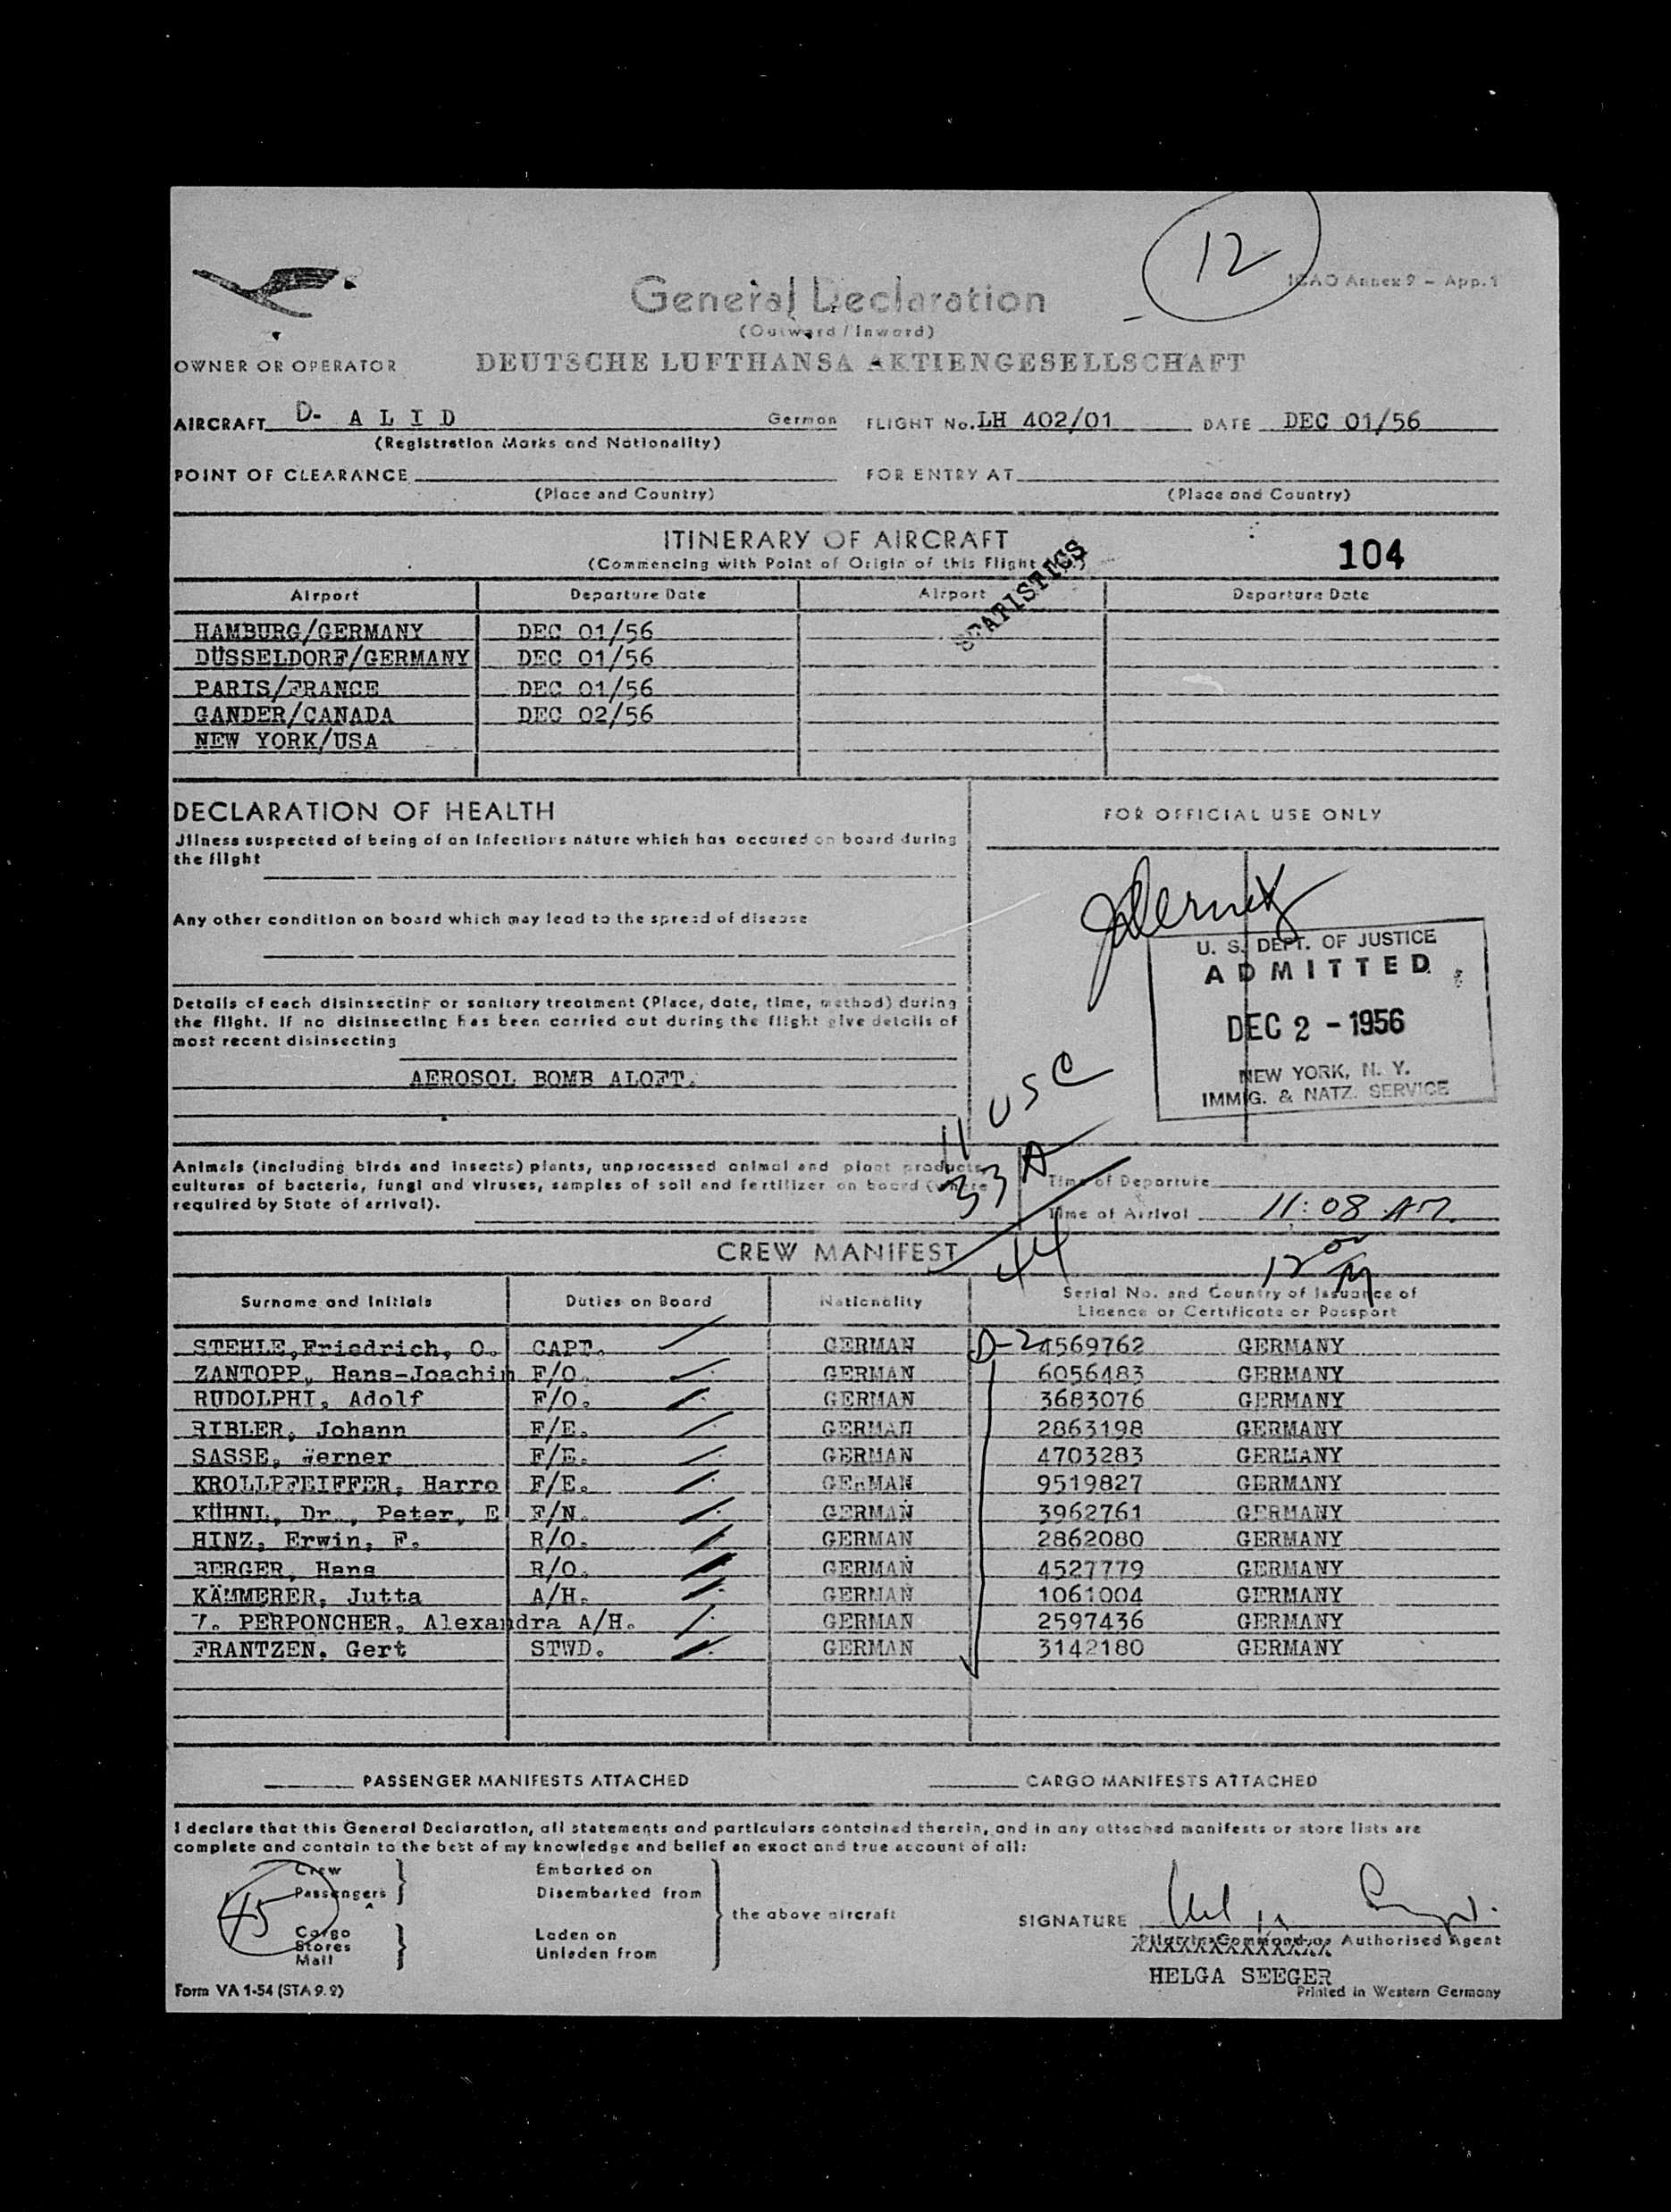 12
ICAO Annex 9 – App. 1
General Declaration
(Outward / Inward)
OWNER OR OPERATOR DEUTSCHE LUFTHANSA AKTIENGESELLSCHAFT
AIRCRAFT D- A L I D German FLIGHT No. LH 402/01 DATE DEC 01/56
(Registration Marks and Nationality)
POINT OF CLEARANCE FOR ENTRY AT
(Place and Country) (Place and Country)
ITINERARY OF AIRCRAFT
104
(Commencing with Point of Origin of this Flight
STATISTICS
Airport Departure Date Airport Departure Date
HAMBURG/GERMANY DEC 01/56
DÜSSELDORF/GERMANY DEC 01/56
PARIS/FRANCE DEC 01/56
GANDER/CANADA DEC 02/56
NEW YORK/USA
DECLARATION OF HEALTH
Jllness suspected of being of an infectious nature which has occured on board during
the flight
Any other condition on board which may lead to the spread of disease
Details of each disinsecting or sanitary treatment (Place, date, time, method) during
the flight. If no disinsecting has been carried out during the flight give details of
most recent disinsecting
AEROSOL BOMB ALOFT.
FOR OFFICIAL USE ONLY
U. S. DEPT. OF JUSTICE
ADMITTED
DEC 2 - 1956
NEW YORK, N. Y.
IMMIG. & NATZ. SERVICE
11 USC
33 A
44
Animals (including birds and insects) plants, unprocessed animal and plant products,
cultures of bacteria, fungi and viruses, samples of soil and fertilizer on board (where
required by State of arrival).
Time of Departure
Time of Arrival 11:08 AM.
12 00 M
CREW MANIFEST
Surname and Initials Duties on Board Nationality Serial No. and Country of Issuance of
Licence or Certificate or Passport
STEHLE,Friedrich, O. CAPT. GERMAN D-2 4569762 GERMANY
ZANTOPP, Hans-Joachim F/O. GERMAN 6056483 GERMANY
RUDOLPHI, Adolf F/O. GERMAN 3683076 GERMANY
RIBLER, Johann F/E. GERMAN 2863198 GERMANY
SASSE, Werner F/E. GERMAN 4703283 GERMANY
KROLLPFEIFFER, Harro F/E. GERMAN 9519827 GERMANY
KÜHNL, Dr., Peter, E F/N. GERMAN 3962761 GERMANY
HINZ, Erwin, F. R/O. GERMAN 2862080 GERMANY
BERGER, Hans R/O. GERMAN 4527779 GERMANY
KÄMMERER, Jutta A/H. GERMAN 1061004 GERMANY
V. PERPONCHER, Alexandra A/H. GERMAN 2597436 GERMANY
FRANTZEN. Gert STWD. GERMAN 3142180 GERMANY
PASSENGER MANIFESTS ATTACHED CARGO MANIFESTS ATTACHED
I declare that this General Declaration, all statements and particulars contained therein, and in any attached manifests or store lists are
complete and contain to the best of my knowledge and belief an exact and true account of all:
Crew
Passengers
45
Cargo
Stores
Mail
Embarked on
Disembarked from
Laden on
Unladen from
the above aircraft
SIGNATURE
Authorised Agent
HELGA SEEGER
Form VA 1-54 (STA 9. 9)
Printed in Western Germany